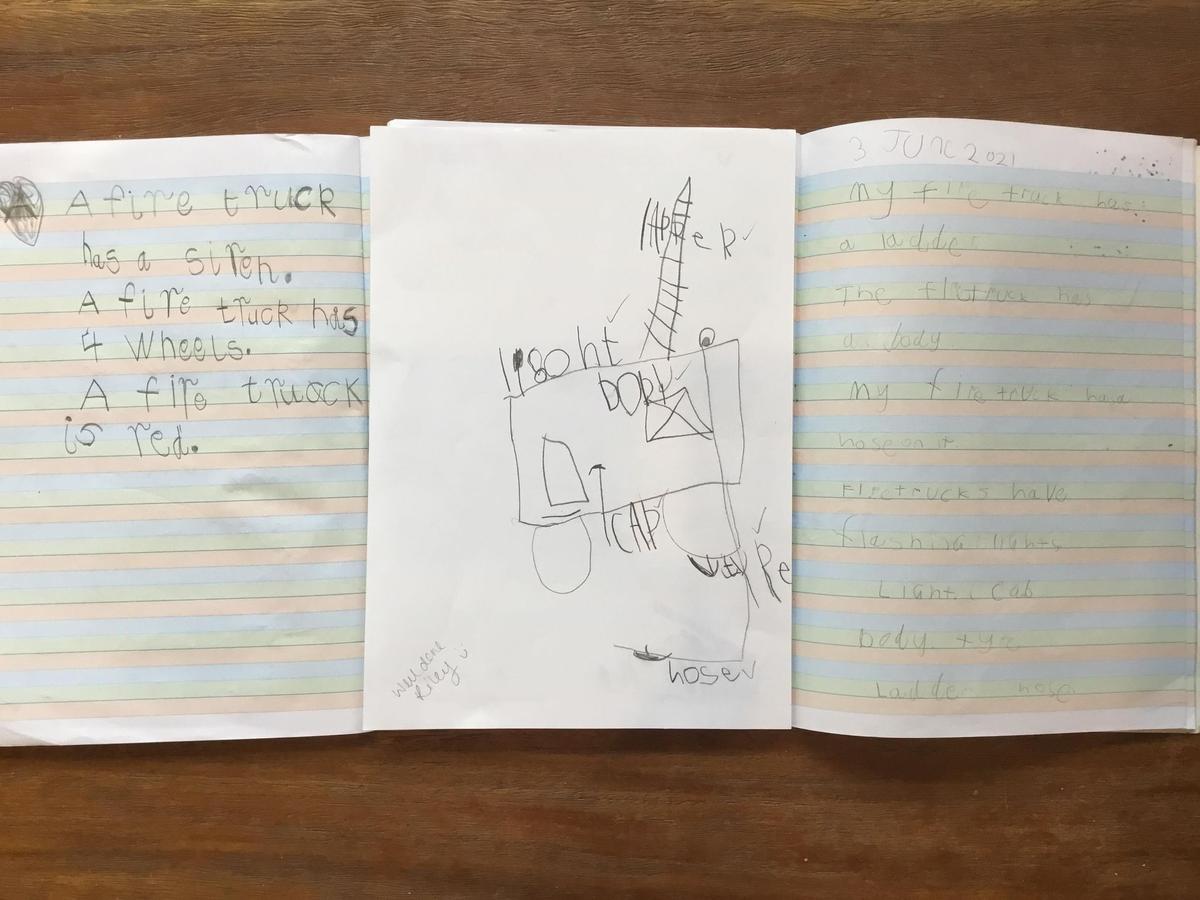 A
A fire truck
has a siren.
A fire truck has
4 wheels.
A fire truock
is red.
light
DORY
CAP
hose
Well done
Riley
3 JUNE 2021
My fire truck has
a ladder
The firetruck has
a body
My fire truck has a
hose on it.
Firetrucks have
flashing lights
Light Cab
body tyre
Ladder hose